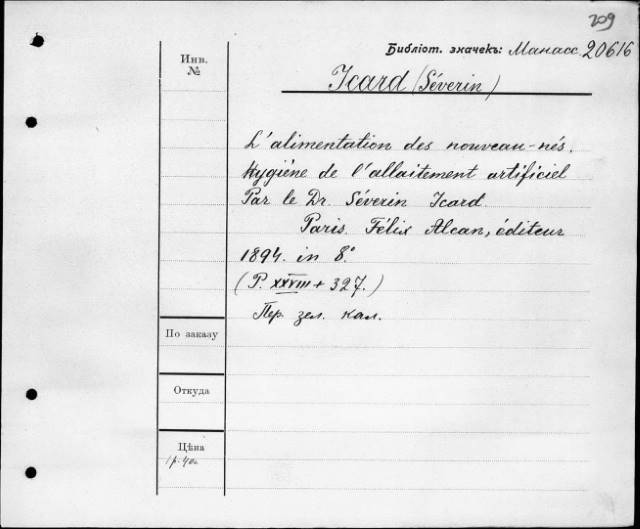 209
Библіот. значекъ: Манасс. 20616
Инв.
№
Icard (Séverin)
L'alimentation des nouveau-nés.
Hygiéne de l'allaitement artificiel
Par le Dr. Séverin Icard
Paris. Félix Alcan, éditeur
1894. in 8.°
(P. XXVIII + 327.)
Пер. зел. кал.
По заказу
Откуда
Цѣна
1 р. 40к.